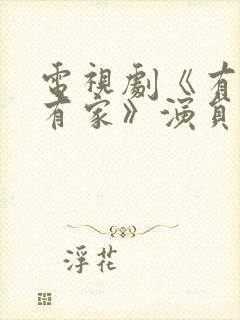 電視劇《有
有家》演員
浮花